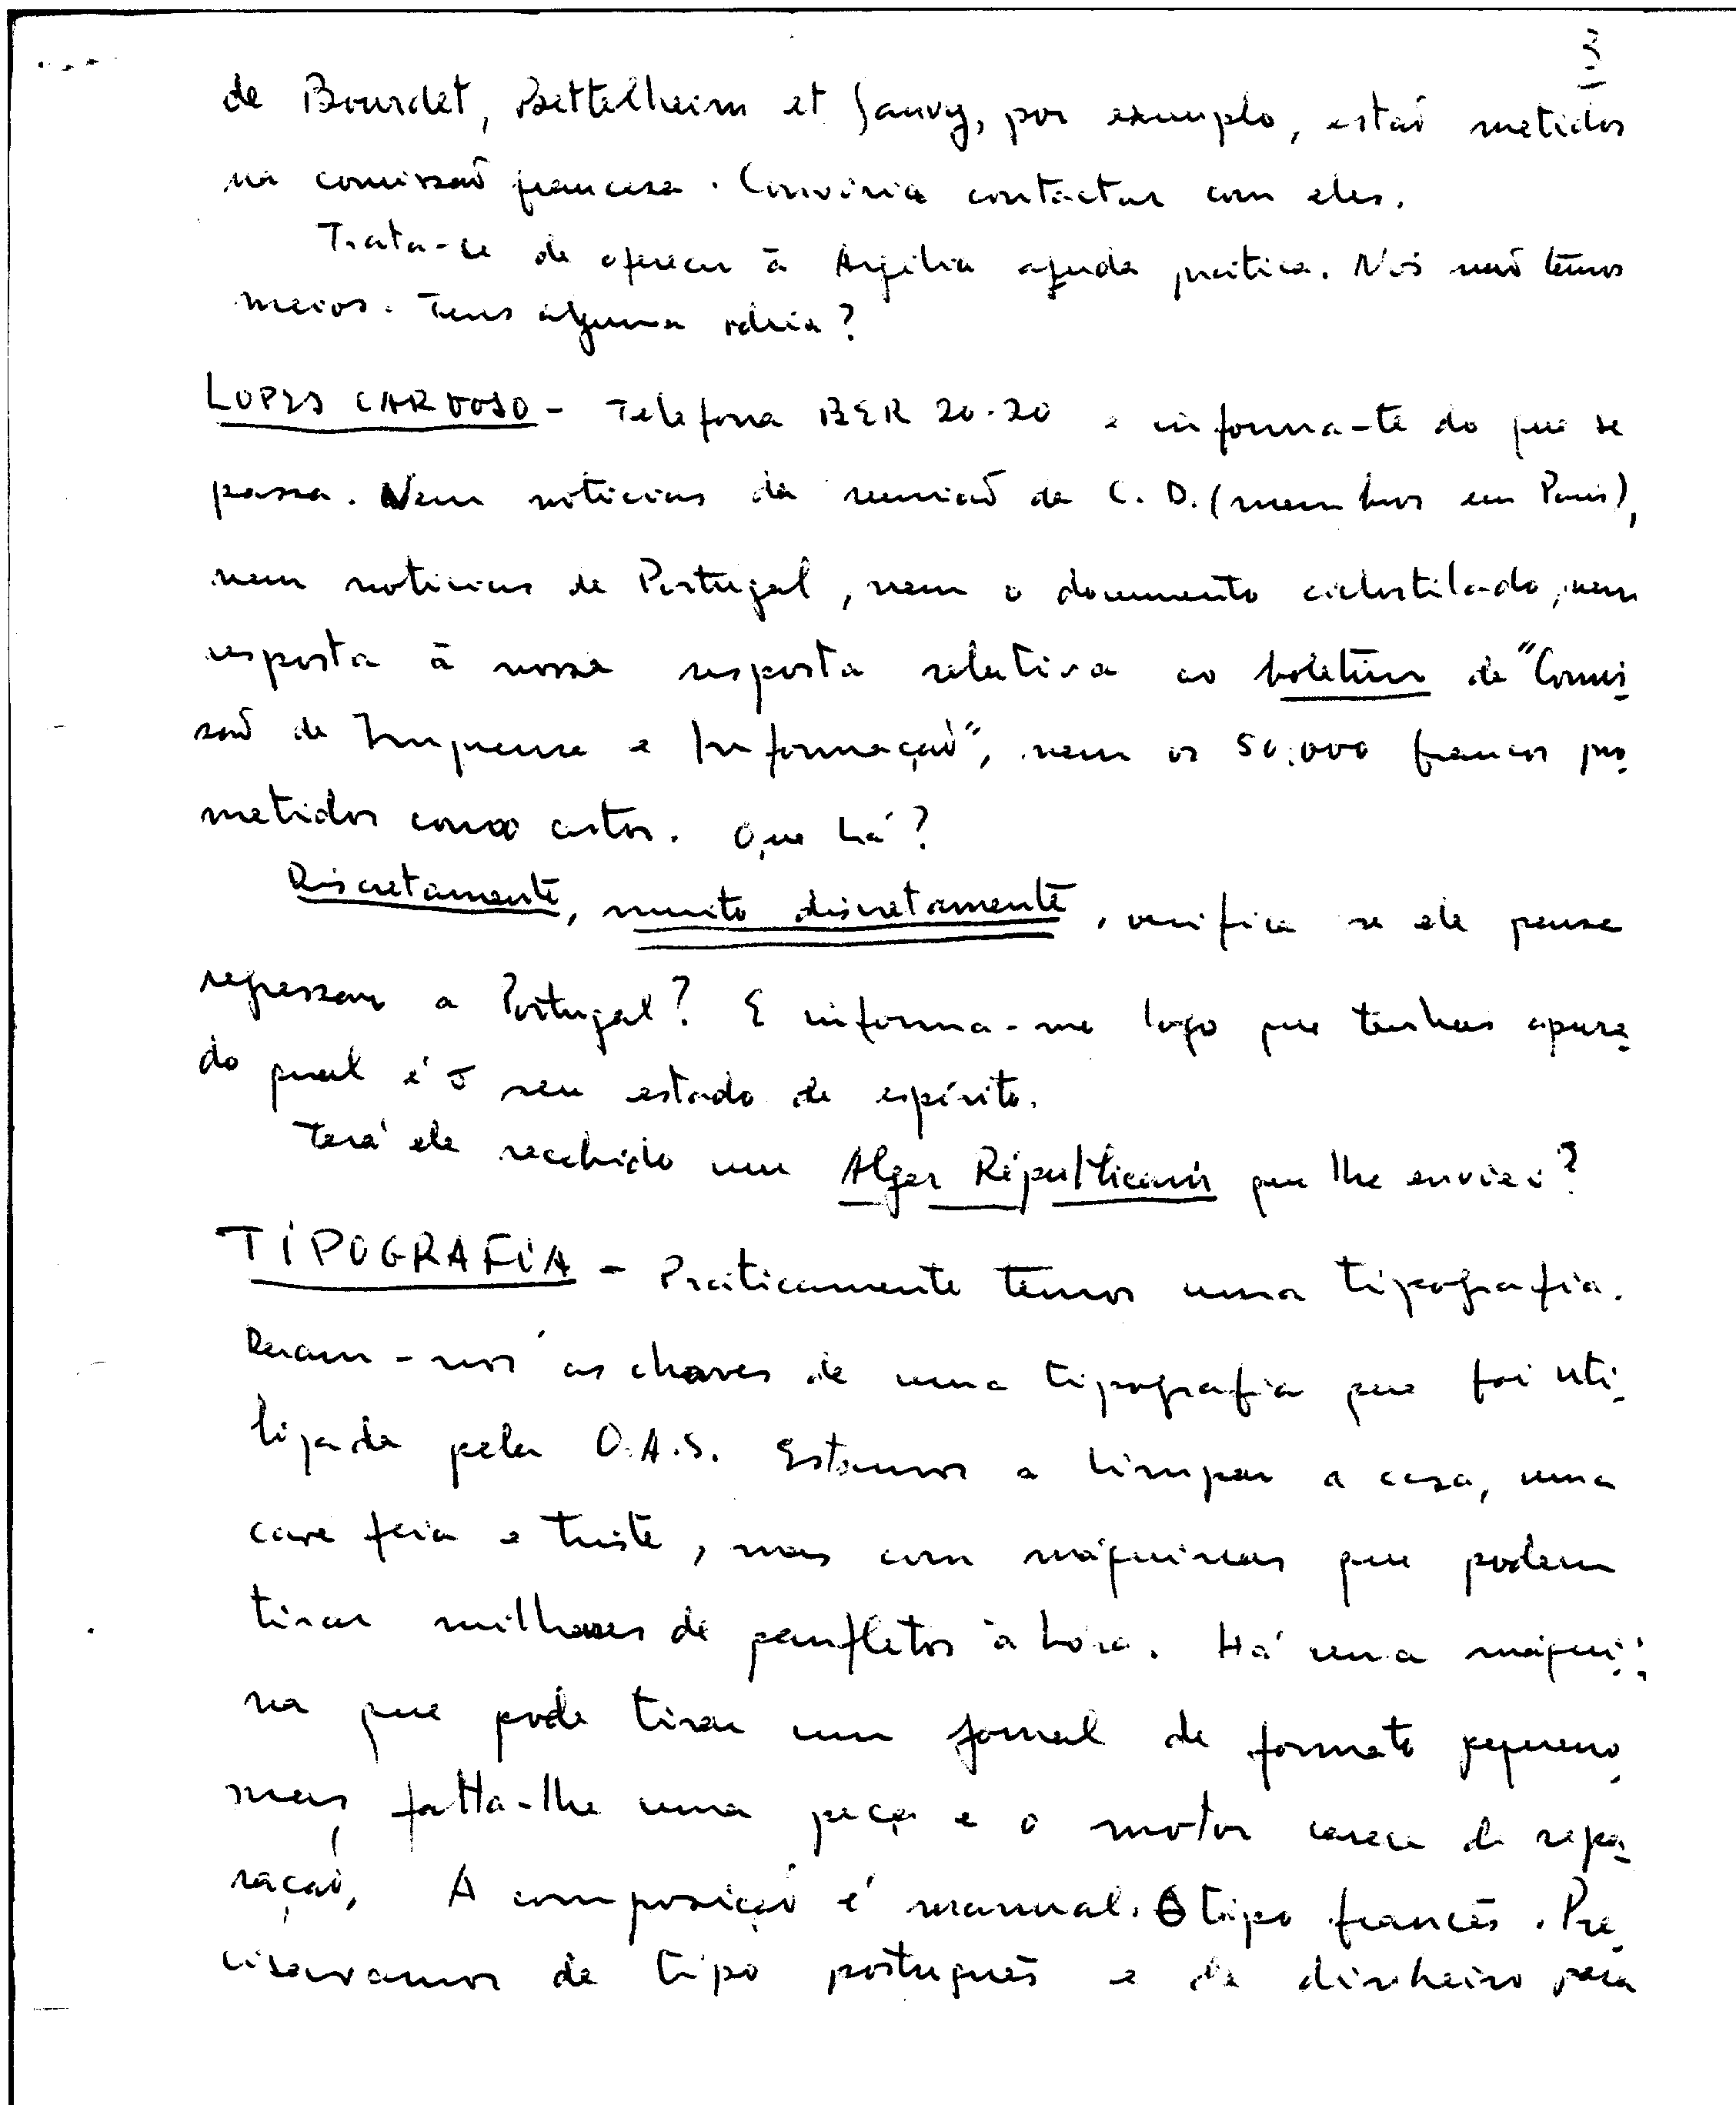 3
de Bourdet, Bettelheim et Sauvy, por exemplo, estão metidos
na comissão francesa. Conviria contactar com eles.
Trata-se de oferecer à Argélia ajuda prática. Nós não temos
meios. Tens alguma ideia?
LOPES CARDOSO - Telefona BER 20-20 e informa-te do que se
passa. Nem notícias da reunião da C.D. (membros em Paris),
nem notícias de Portugal, nem o documento ciclostilado, nem
resposta à nossa resposta relativa ao boletim da "Comis-
são de Imprensa e Informação", nem os 50.000 francos pro-
metidos como certos. Que há?
Discretamente, muito discretamente, verifica se ele pensa
regressar a Portugal? E informa-me logo que tenhas apura-
do qual é o seu estado de espírito.
Terá ele recebido um Alger Républicain que lhe enviei?
TIPOGRAFIA - Práticamente temos uma tipografia.
Deram-nos as chaves de uma tipografia que foi uti-
lizada pela O.A.S. Estamos a limpar a casa, uma
cave feia e triste, mas com máquinas que podem
tirar milhares de panfletos à hora. Há uma máqui-
na que pode tirar um jornal de formato pequeno
mas falta-lhe uma peça e o motor carece de repa-
ração. A composição é manual. O tipo francês. Pre-
cisavamos de tipo português e de dinheiro para